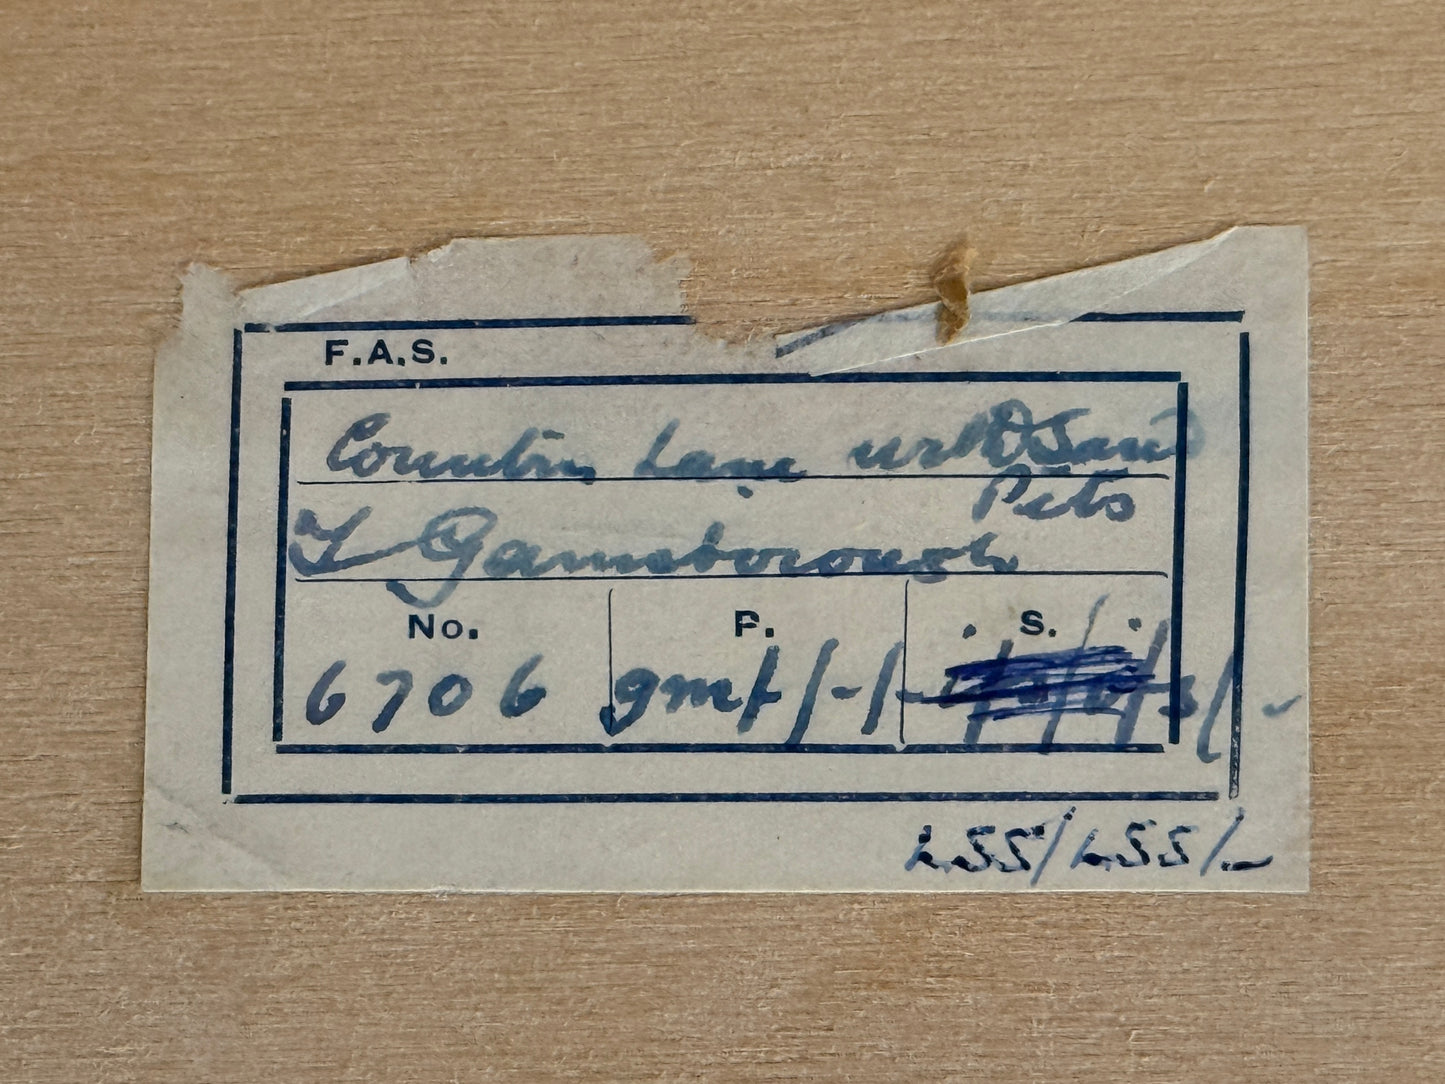 F.A.S.
Country Lane with Sand
Pits
T Gainsborough
No. P. S.
6706 gmf/-/-
L.55/L.55/-